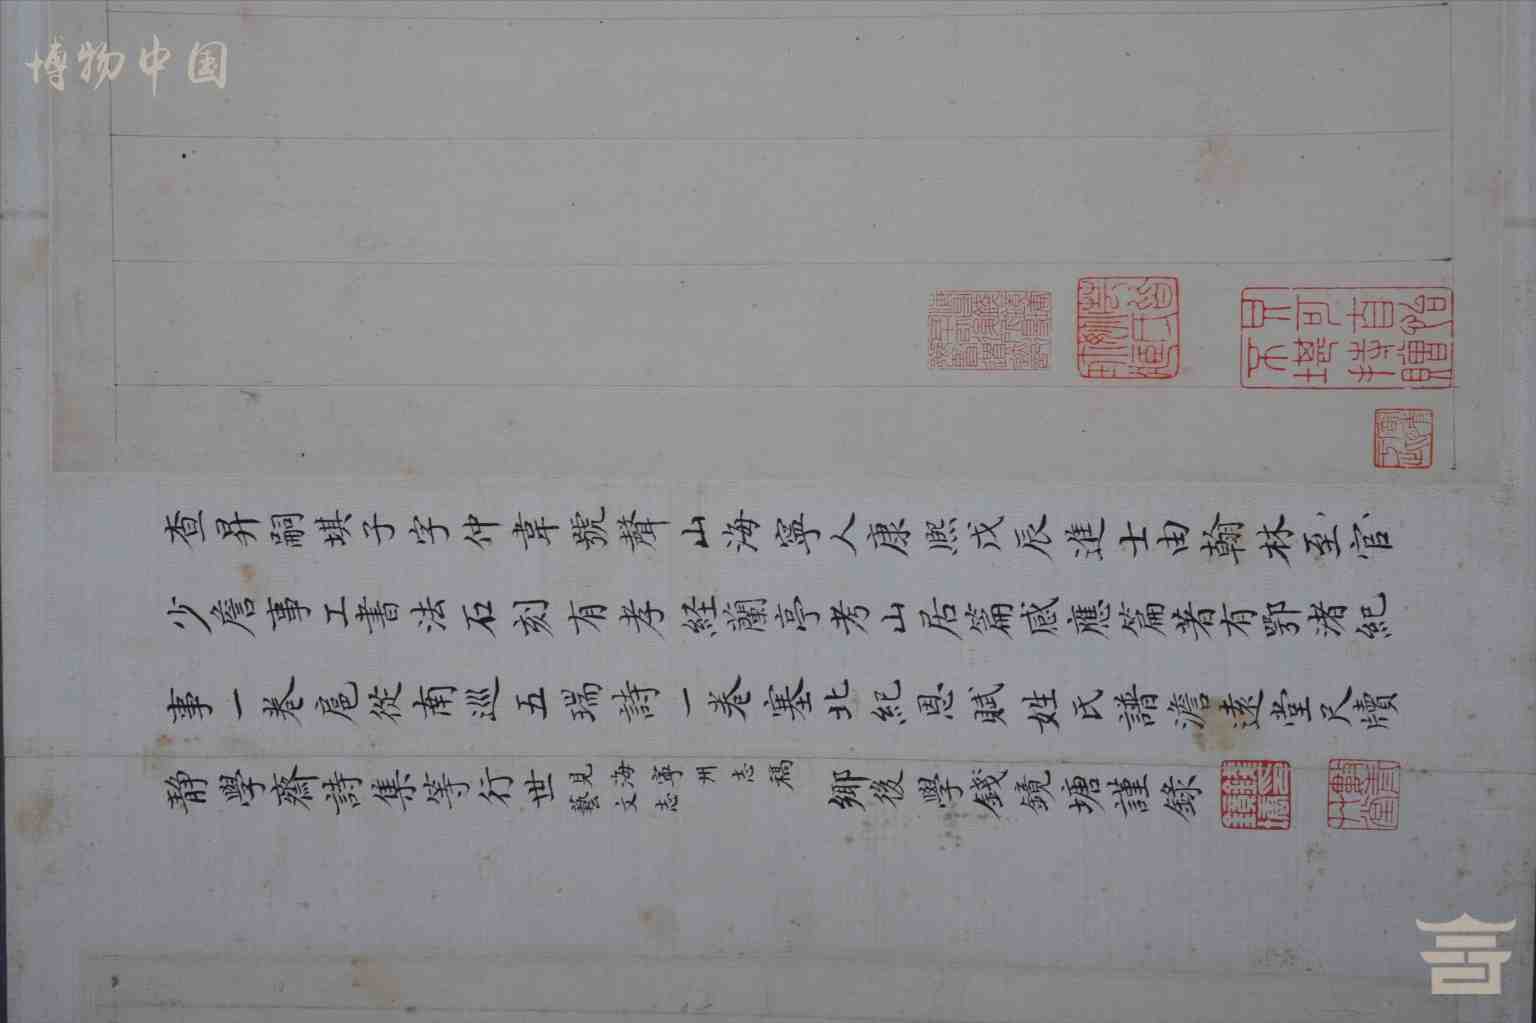 博物中国
查昇嗣琪子字仲韋號聲山海寧人康熙戊辰進士由翰林至官
少詹事工書法石刻有孝経蘭亭考山居篇感應篇著有鄂渚紀
事一卷扈從南巡五瑞詩一卷塞北紀恩賦姓氏譜澹遠堂尺牘
静學齋詩集等行世見海寧州志稿藝文志 鄉後學錢鏡塘謹錄